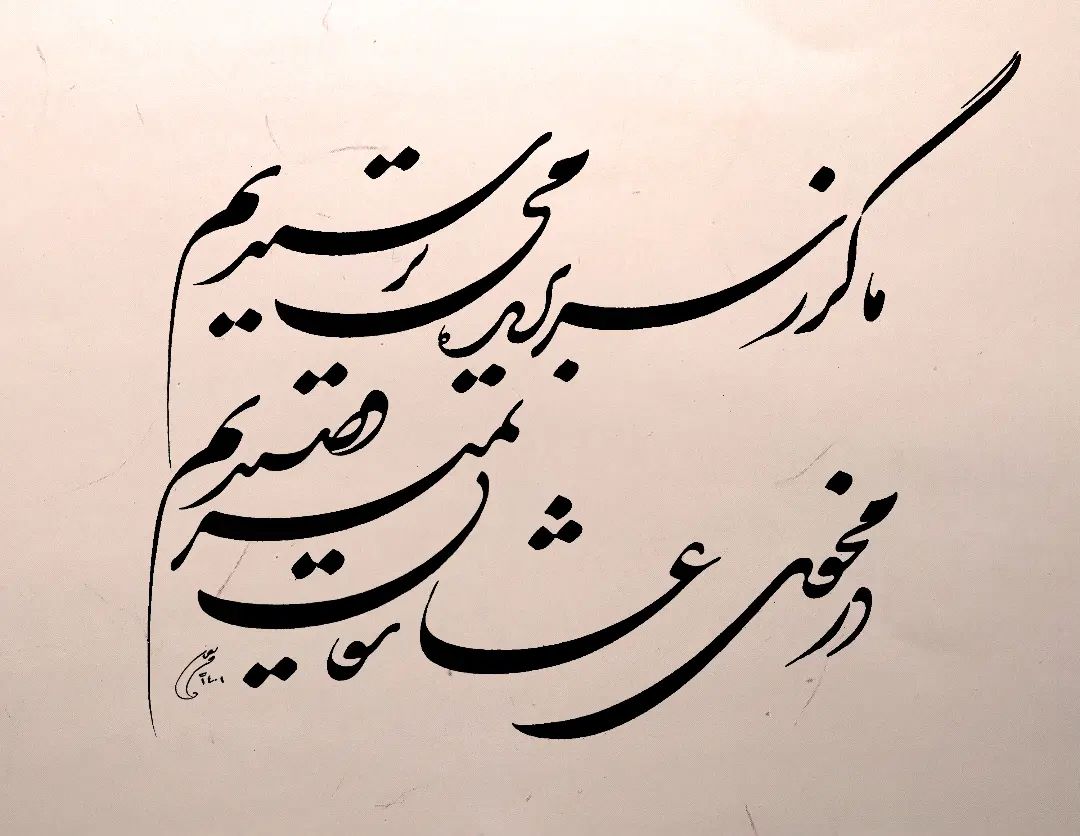 ما گر ز سر بریده می ترسیدیم
در محفل عاشقان نمی رقصیدیم